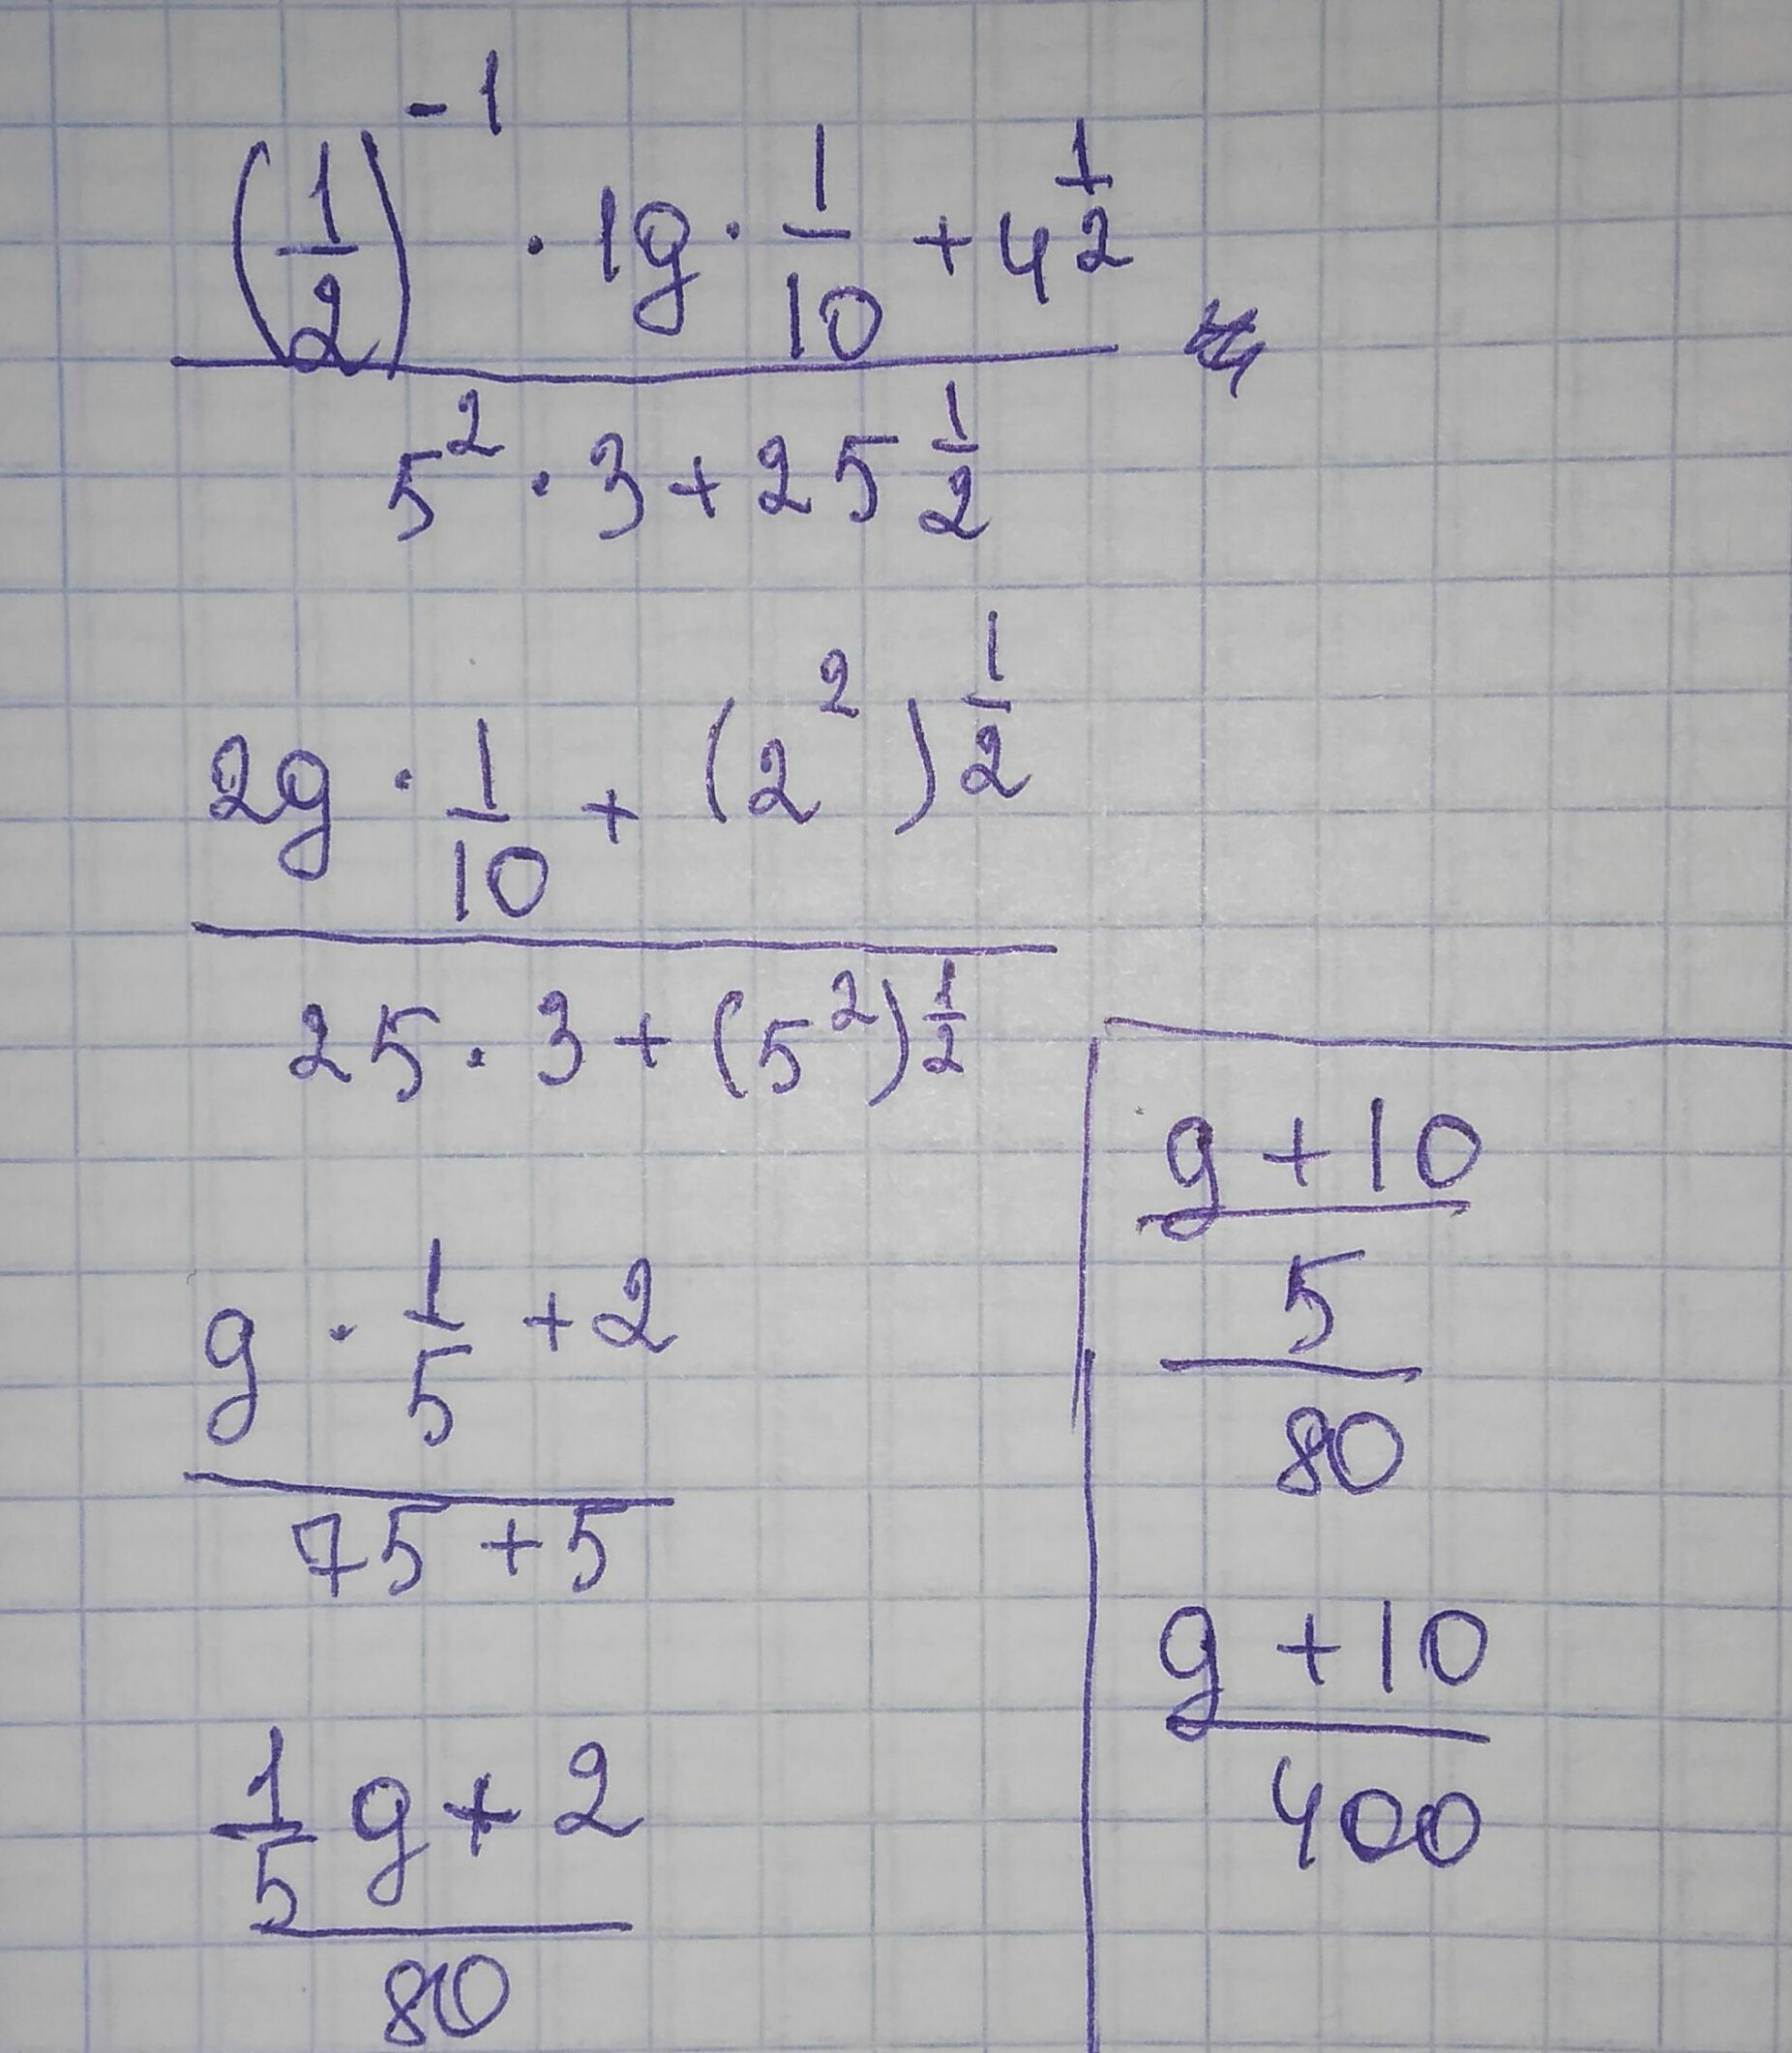 (1/2)^-1 · 1g · 1/10 + 4^1/2
5^2 · 3 + 25^1/2
2g · 1/10 + (2^2)^1/2
25 · 3 + (5^2)^1/2
g · 1/5 + 2
75 + 5
1/5 g + 2
80
g + 10
5
80
g + 10
400